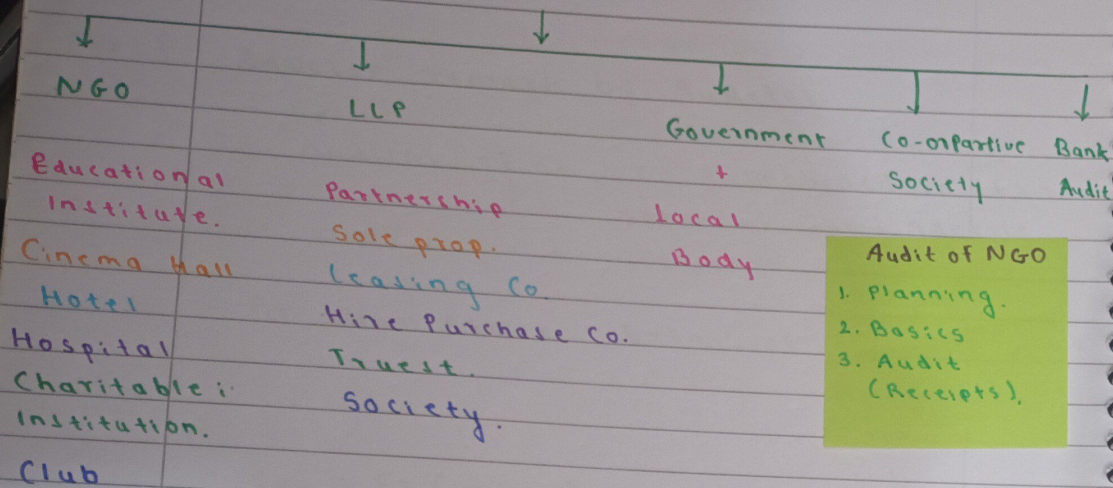 NGO
Educational
Institute.
Cinema Hall
Hotel
Hospital
Charitable
Institution.
Club
LLP
Partnership
Sole prop.
Leasing Co.
Hire Purchase Co.
Truest.
Society.
Government
+
Local
Body
Co-orpartive
Society
Bank
Audit
Audit of NGO
1. Planning.
2. Basics
3. Audit
(Receipts).